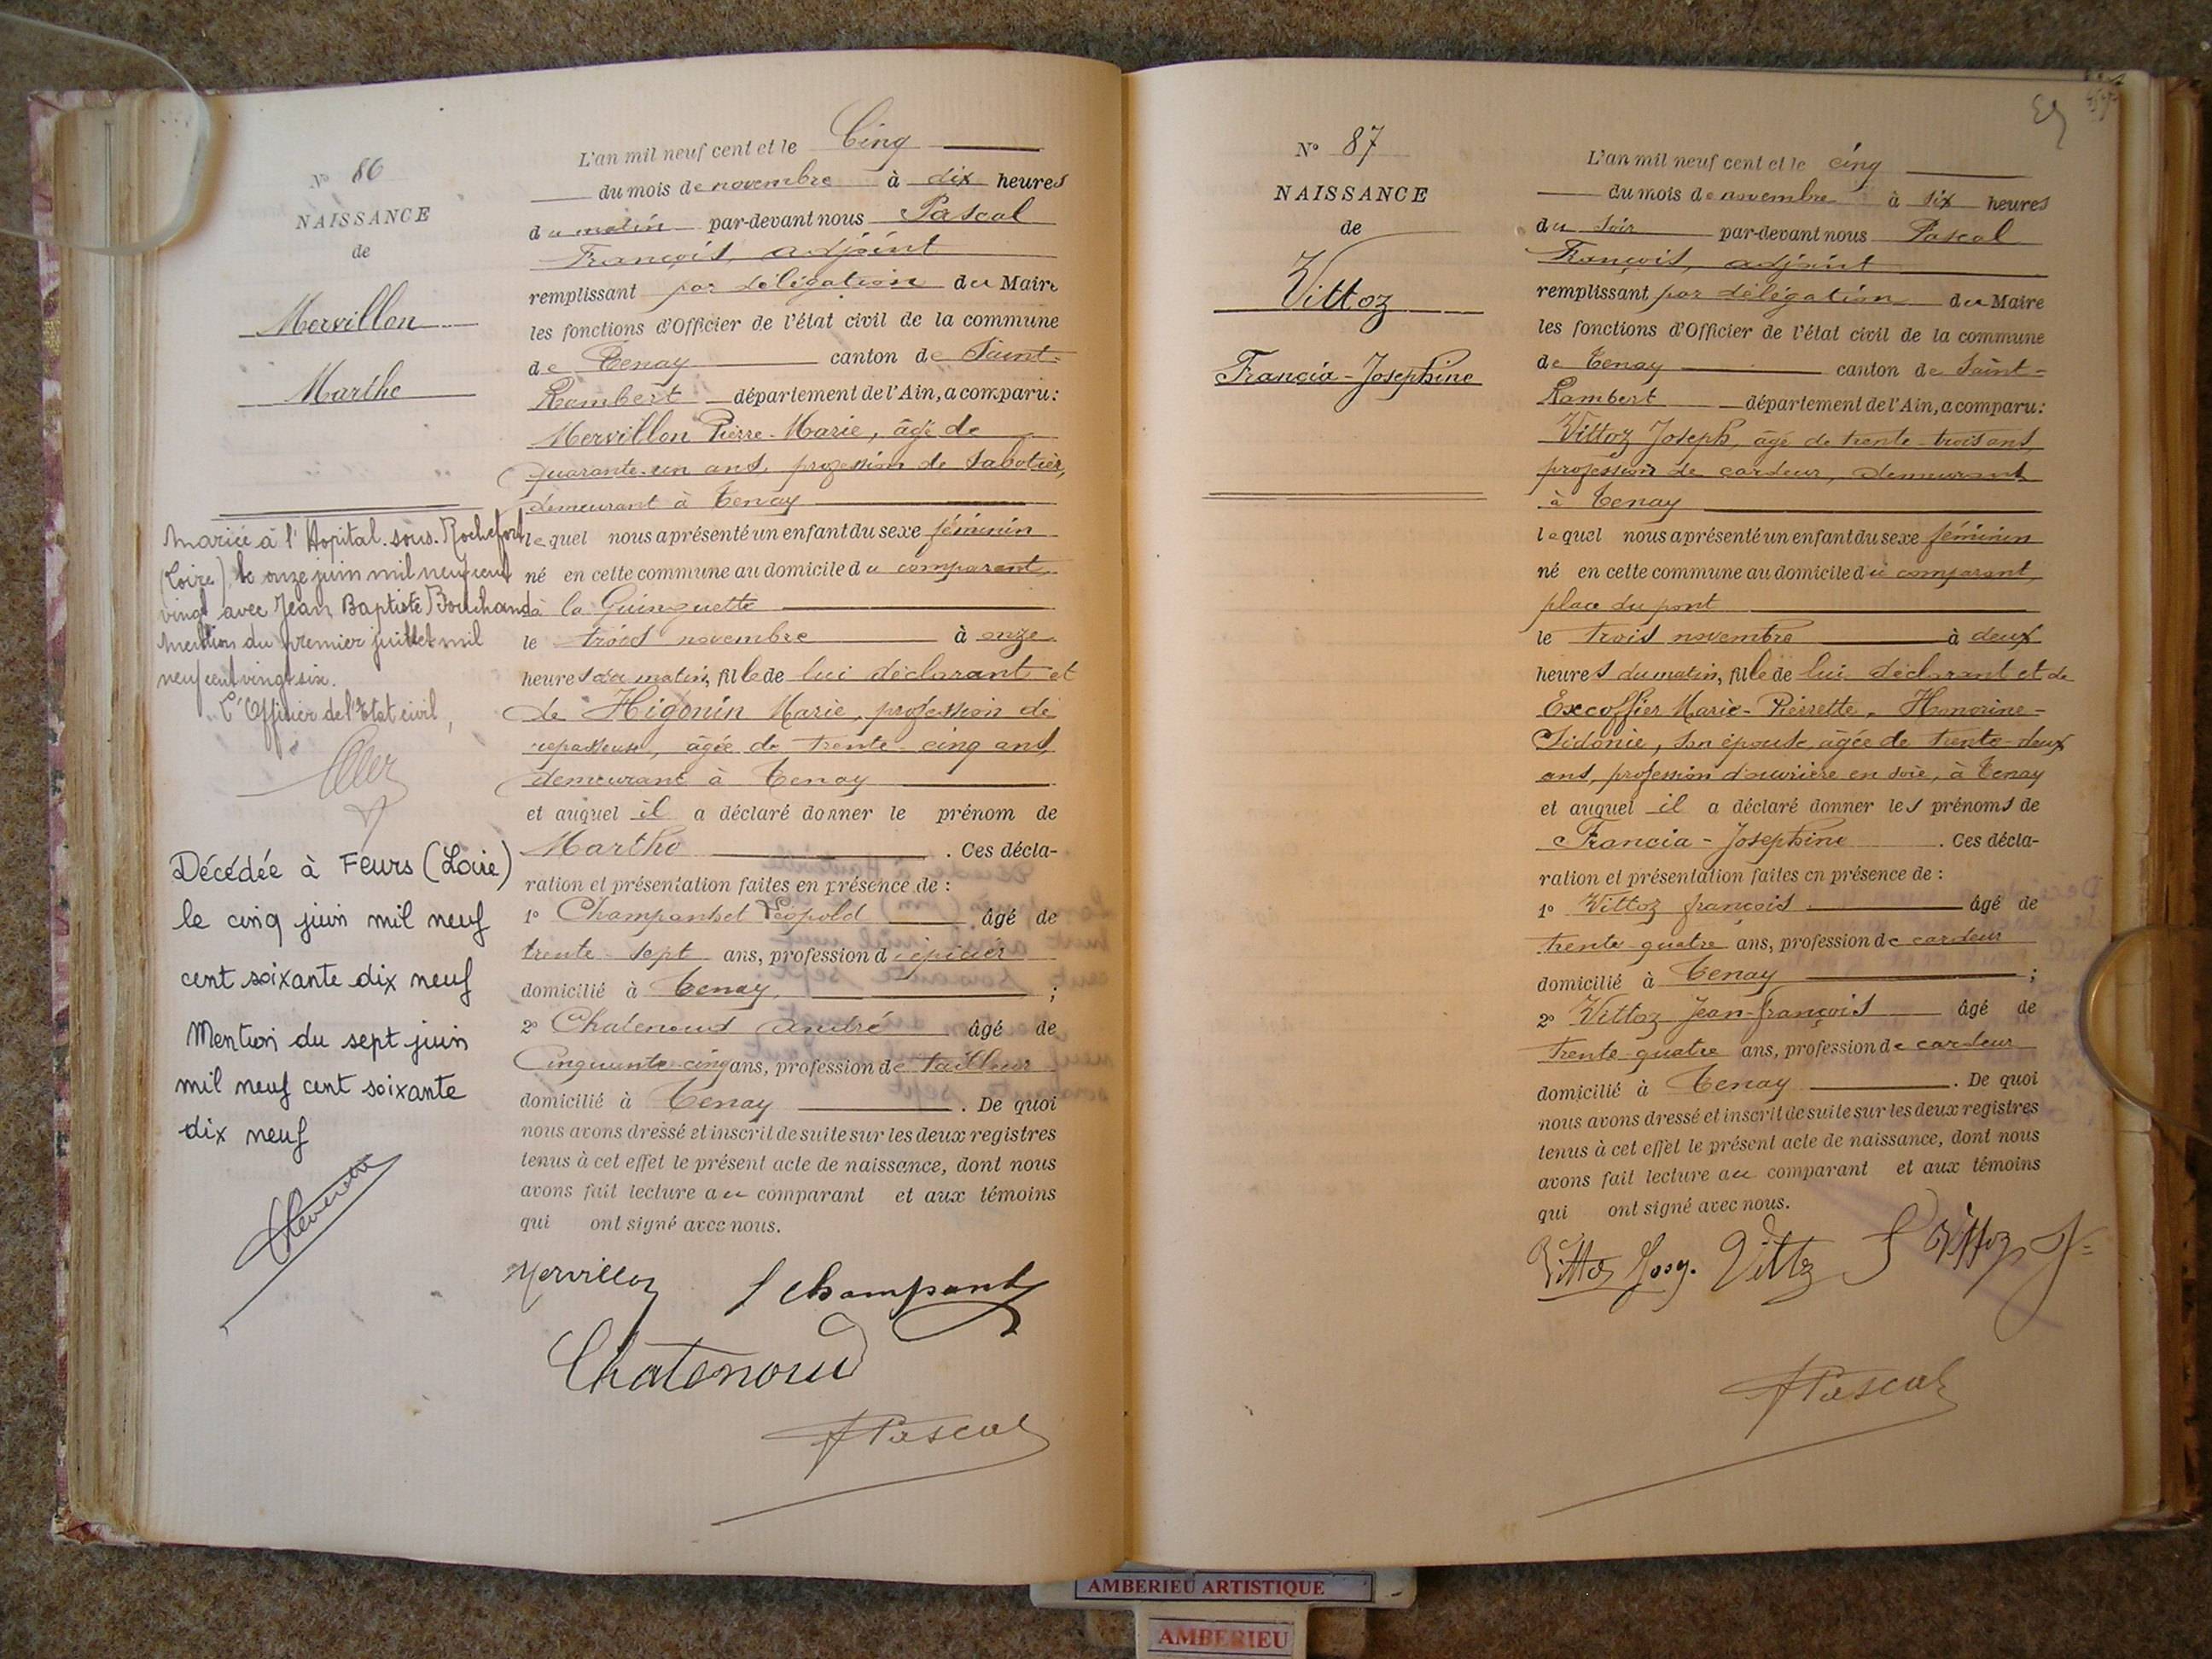 N° 86
NAISSANCE
de
Mervillon
Marthe
Mariée à l'Hopital-sous-Rochefort
(Loire) le onze juin mil neuf cent
vingt avec Jean Baptiste
Mention du premier juillet mil
neuf cent vingt six.
L'Officier de l'Etat civil,
Décédée à Feurs (Loire)
le cinq juin mil neuf
cent soixante dix neuf
Mention du sept juin
mil neuf cent soixante
dix neuf
L'an mil neuf cent et le Cinq
du mois de novembre à dix heures
du matin par-devant nous Pascal
François, adjoint
remplissant par délégation du Maire
les fonctions d'Officier de l'état civil de la commune
de Tenay canton de Saint-
Rambert département de l'Ain, a comparu:
Mervillon Pierre-Marie, âgé de
quarante-un ans, profession de sabotier,
demeurant à Tenay
lequel nous a présenté un enfant du sexe féminin
né en cette commune au domicile du comparant
à la Guinguette
le trois novembre à onze
heures du matin, fille de lui déclarant et
de Higonin Marie, profession de
repasseuse, âgée de trente-cinq ans,
demeurant à Tenay
et auquel il a déclaré donner le prénom de
Marthe. Ces décla-
ration et présentation faites en présence de :
1° Champanhet Léopold âgé de
trente-sept ans, profession d'épicier
domicilié à Tenay ;
2° Chatenoud André âgé de
Cinquante-cinq ans, profession de tailleur
domicilié à Tenay. De quoi
nous avons dressé et inscrit de suite sur les deux registres
tenus à cet effet le présent acte de naissance, dont nous
avons fait lecture au comparant et aux témoins
qui ont signé avec nous.
Mervillon L Champanh
Chatenoud
F Pascal
N° 87
NAISSANCE
de
Vittoz
Francia-Josephine
L'an mil neuf cent et le cinq
du mois de novembre à six heures
du soir par-devant nous Pascal
François, adjoint
remplissant par délégation du Maire
les fonctions d'Officier de l'état civil de la commune
de Tenay canton de Saint-
Rambert département de l'Ain, a comparu:
Vittoz Joseph, âgé de trente-trois ans,
profession de cardeur, demeurant
à Tenay
lequel nous a présenté un enfant du sexe féminin
né en cette commune au domicile du comparant,
place du pont
le trois novembre à deux
heures du matin, fille de lui déclarant et de
Excoffier Marie-Pierrette-Honorine-
Sidonie, son épouse, âgée de trente-deux
ans, profession d'ouvrière en soie, à Tenay
et auquel il a déclaré donner les prénoms de
Francia-Josephine. Ces décla-
ration et présentation faites en présence de :
1° Vittoz françois âgé de
trente-quatre ans, profession de cardeur
domicilié à Tenay ;
2° Vittoz Jean-françois âgé de
trente-quatre ans, profession de cardeur
domicilié à Tenay. De quoi
nous avons dressé et inscrit de suite sur les deux registres
tenus à cet effet le présent acte de naissance, dont nous
avons fait lecture au comparant et aux témoins
qui ont signé avec nous.
Vittoz Vittoz Vittoz
F Pascal
AMBERIEU ARTISTIQUE
AMBERIEU